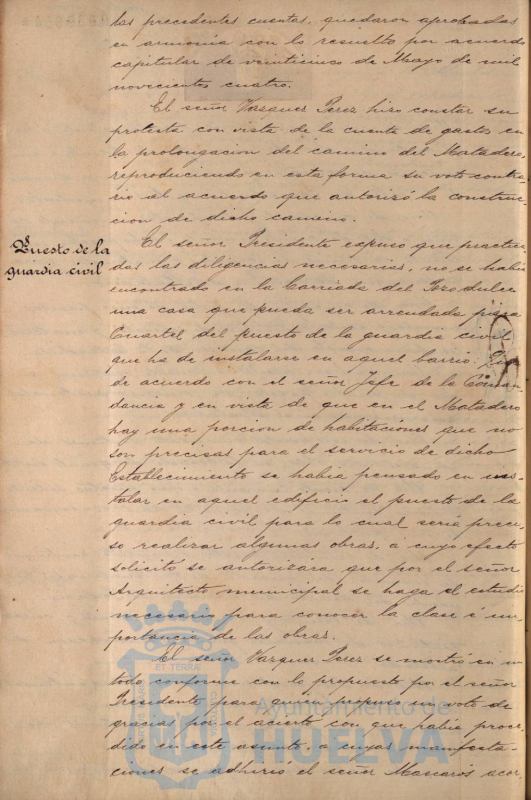 las precedentes cuentas, quedaron aprobadas
en armonía con lo resuelto por acuerdo
capitular de veinticinco de Mayo de mil
novecientos cuatro.
El señor Vazquez Perez hizo constar su
protesta con vista de la cuenta de gastos en
la prolongacion del camino del Matadero,
reproduciendo en esta forma su voto contra
rio al acuerdo que autorizó la construc-
cion de dicho camino.
Puesto de la
guardia civil
El señor Presidente expuso que practica
das las diligencias necesarias, no se había
encontrado en la Barriada del Pozo dulce
una casa que pueda ser arrendada para
Cuartel del puesto de la guardia civil
que ha de instalarse en aquel barrio. Que
de acuerdo con el señor Jefe de la Coman
dancia y en vista de que en el Matadero
hay una porcion de habitaciones que no
son precisas para el servicio de dicho
Establecimiento se habia pensado en ins
talar en aquel edificio el puesto de la
guardia civil para lo cual seria preci-
so realizar algunas obras, á cuyo efecto
solicitó se autorizara que por el señor
Arquitecto municipal se haga el estudio
necesario para conocer la clase é im
portancia de las obras.
El señor Vazquez Perez se mostró en un
todo conforme con lo propuesto por el señor
Presidente para quien propuso un voto de
gracias por el acierto con que habia proce
dido en este asunto, a cuyas manifesta-
ciones se adhirió el señor Mascarós acor
ET TERRAE
Ayuntamiento de
HUELVA